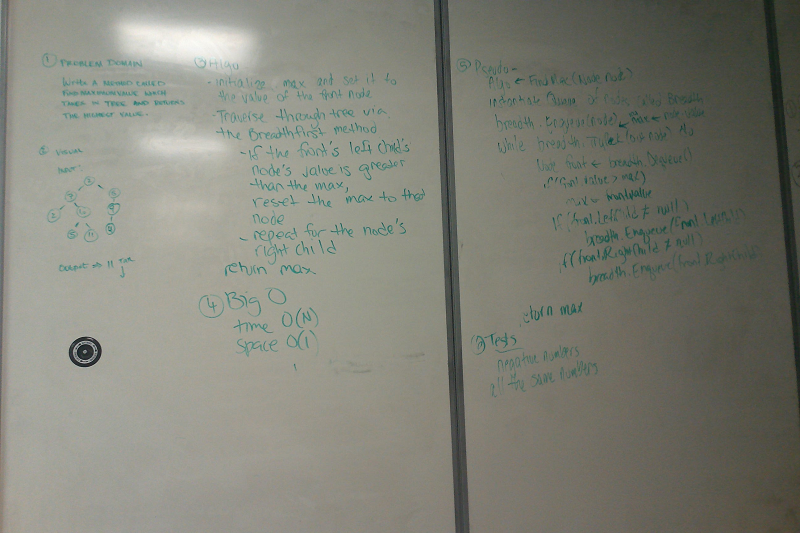 ① PROBLEM DOMAIN
WRITE A METHOD CALLED
FIND MAXIMUM VALUE WHICH
TAKES IN TREE AND RETURNS
THE HIGHEST VALUE.
② VISUAL
INPUT:
2
7
5
2
6
9
5
11
OUTPUT => 11
③ Algo
- initialize max and set it to
the value of the front Node
- Traverse through tree via
the Breadthfirst method
- If the front's left child's
node's value is greater
than the max,
reset the max to that
node
- repeat for the node's
right child
return max
④ Big O
time O(N)
space O(1)
⑤ Pseudo -
ALG ← FindMax(Node node)
Queue of Nodes called Breadth
breadth.Enqueue(node) max ← node.value
while breadth.
Node front ← breadth.Dequeue()
if(front.value > max)
max = front.value
If (front.LeftChild ≠ null)
breadth.Enqueue(front.LeftChild)
if (front.RightChild ≠ null)
breadth.Enqueue(front.RightChild)
return max
Tests
negative numbers
all the same numbers